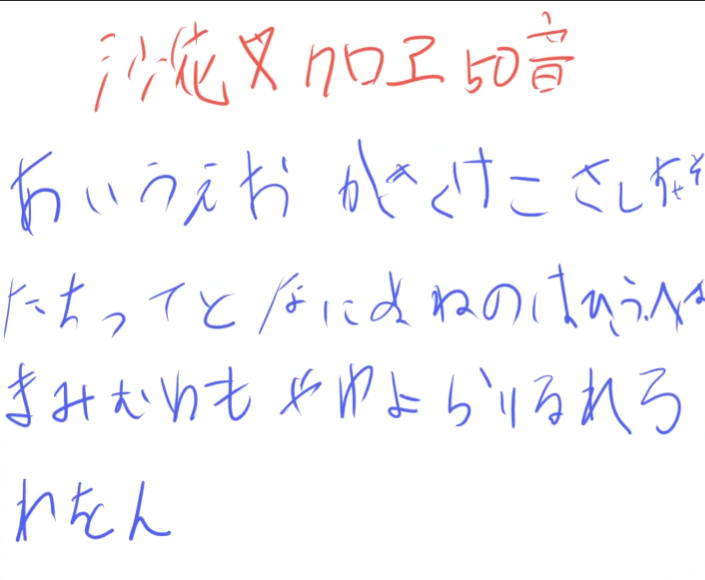 沙花叉クロヱ50音
あいうえお かきくけこ さしすせそ
たちつてと なにぬねの はひふへほ
まみむめも やゆよ らりるれろ
わをん